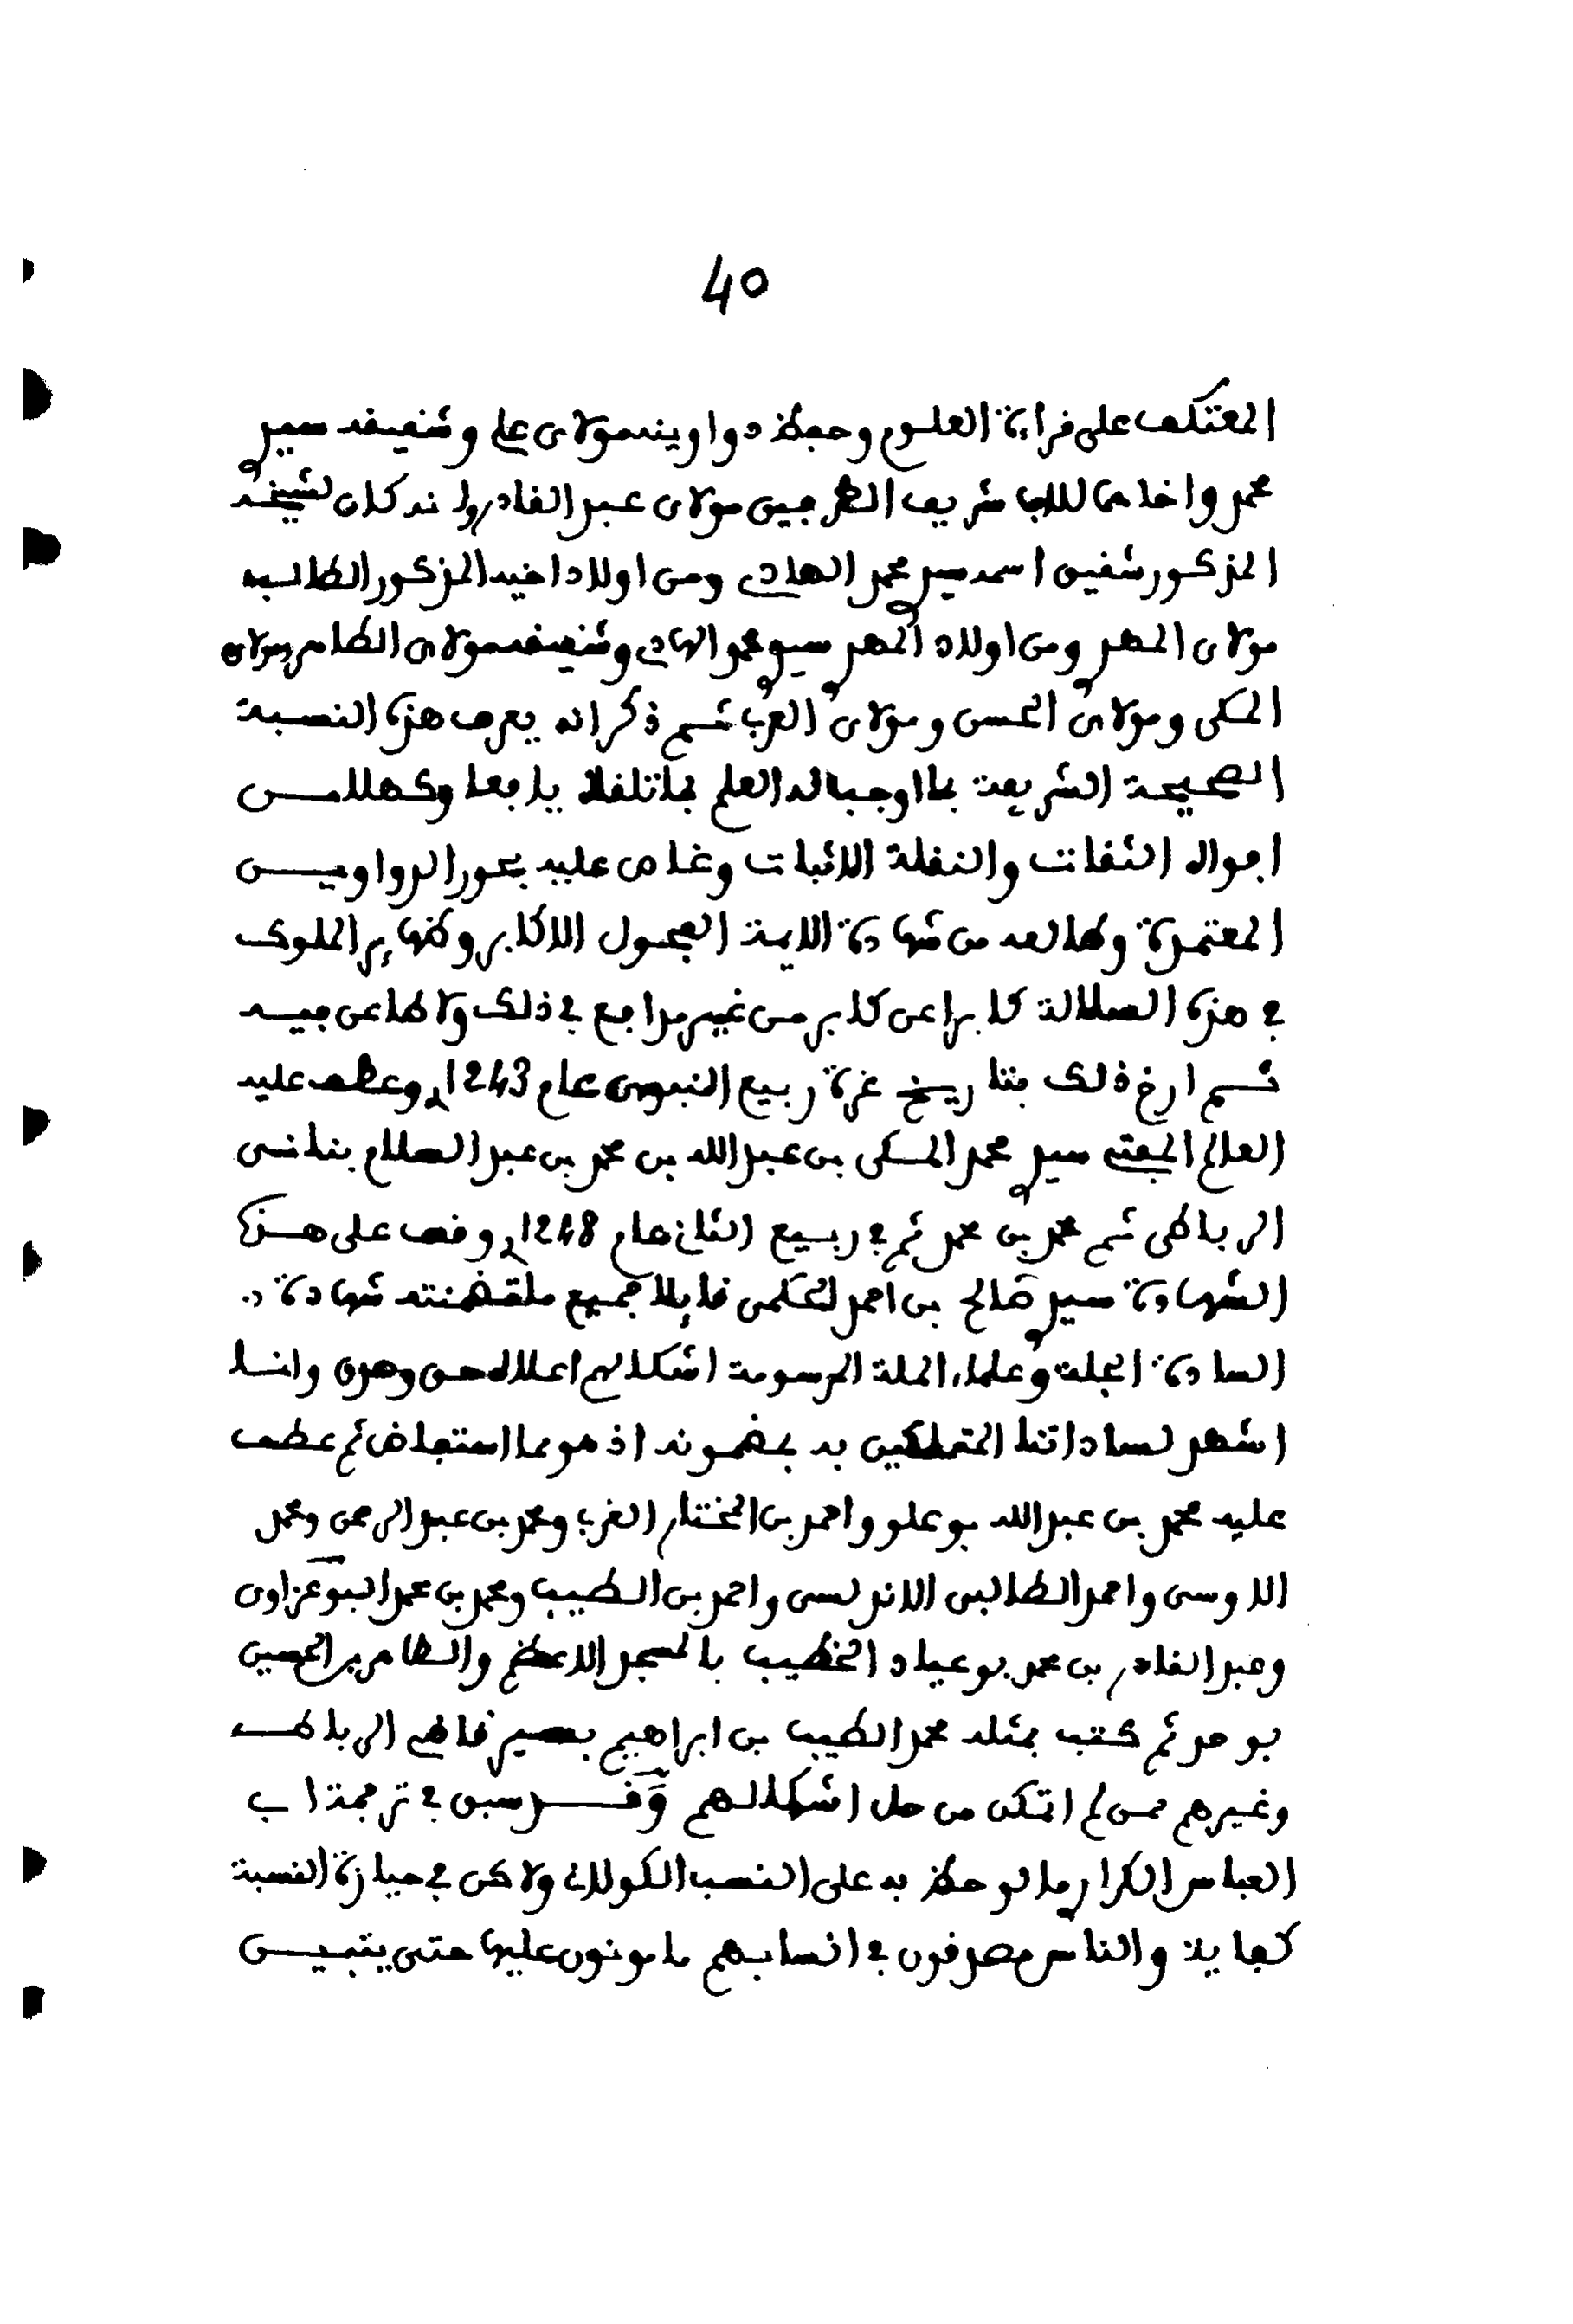 40
المعتكف على قراءة العلوم وحفظ دواوينه مولاي علي وشقيقه سيدي
محمد واخاهما للاب شريف الطرفين مولاي عبد القادر وانه كان لشيخه
المذكور شقيق اسمه سيدي محمد الهادي ومن اولاد اخيه المذكور الطالب
مولاي المهدي ومن اولاد المهدي سيدي محمد الهادي وشقيقه مولاي الطاهر ومولاي
المكي ومولاي الحسن ومولاي العربي ثم ذكر انه يعرف هذه النسبة
الصحيحة الشريفة بما اوجب له العلم بما تلقاه يافعا وكهلا من
افواه الثقات والنقلة الاثبات وغاص عليه بحور الدواوين
المعتمدة وطالعه من شهادة الايمة الفحول الاكابر وظهاير الملوك
في هذه السلالة كابرا عن كابر من غير مدافع في ذلك ولا طاعن فيه
ثم ارخ ذلك بتاريخ غرة ربيع النبوي عام 1243 وعطف عليه
العالم المفتي سيدي محمد المكي بن عبد الله بن محمد بن عبد السلام بناني
الرباطي ثم محمد بن محمد ثم في ربيع الثاني عام 1248 وقف على هذه
الشهادة سيدي صالح بن احمد الحكمي قايلا جميع ما تضمنته شهادة
السادة الجلة وعلماء الملة المرسومة اشكالهم اعلاه حق وصدق وانا
اشهد لساداتنا المتمسكين به بمضمونه اذ هو مما استفاض ثم عطف
عليه محمد بن عبد الله بوعلو واحمد بن المختار الغربي ومحمد بن عبد الرحمن ومحمد
الاوسي واحمد الطالبي الاندلسي واحمد بن الطيب ومحمد بن محمد البوعزاوي
وعبد القادر بن محمد بوعياد الخطيب بالمسجد الاعظم والطاهر بن الحسين
بو حد ثم كتب بمثله محمد الطيب بن ابراهيم بسير قاضي الرباط
وغيرهم ممن لم اتمكن من حل اشكالهم وقد سبق في ترجمة ابي
العباس الكرارما لوحظ به على النسب الكولالي ولاكن في حيازة النسبة
كفاية والناس مصدقون في انسابهم مامونون عليها حتى يتبين